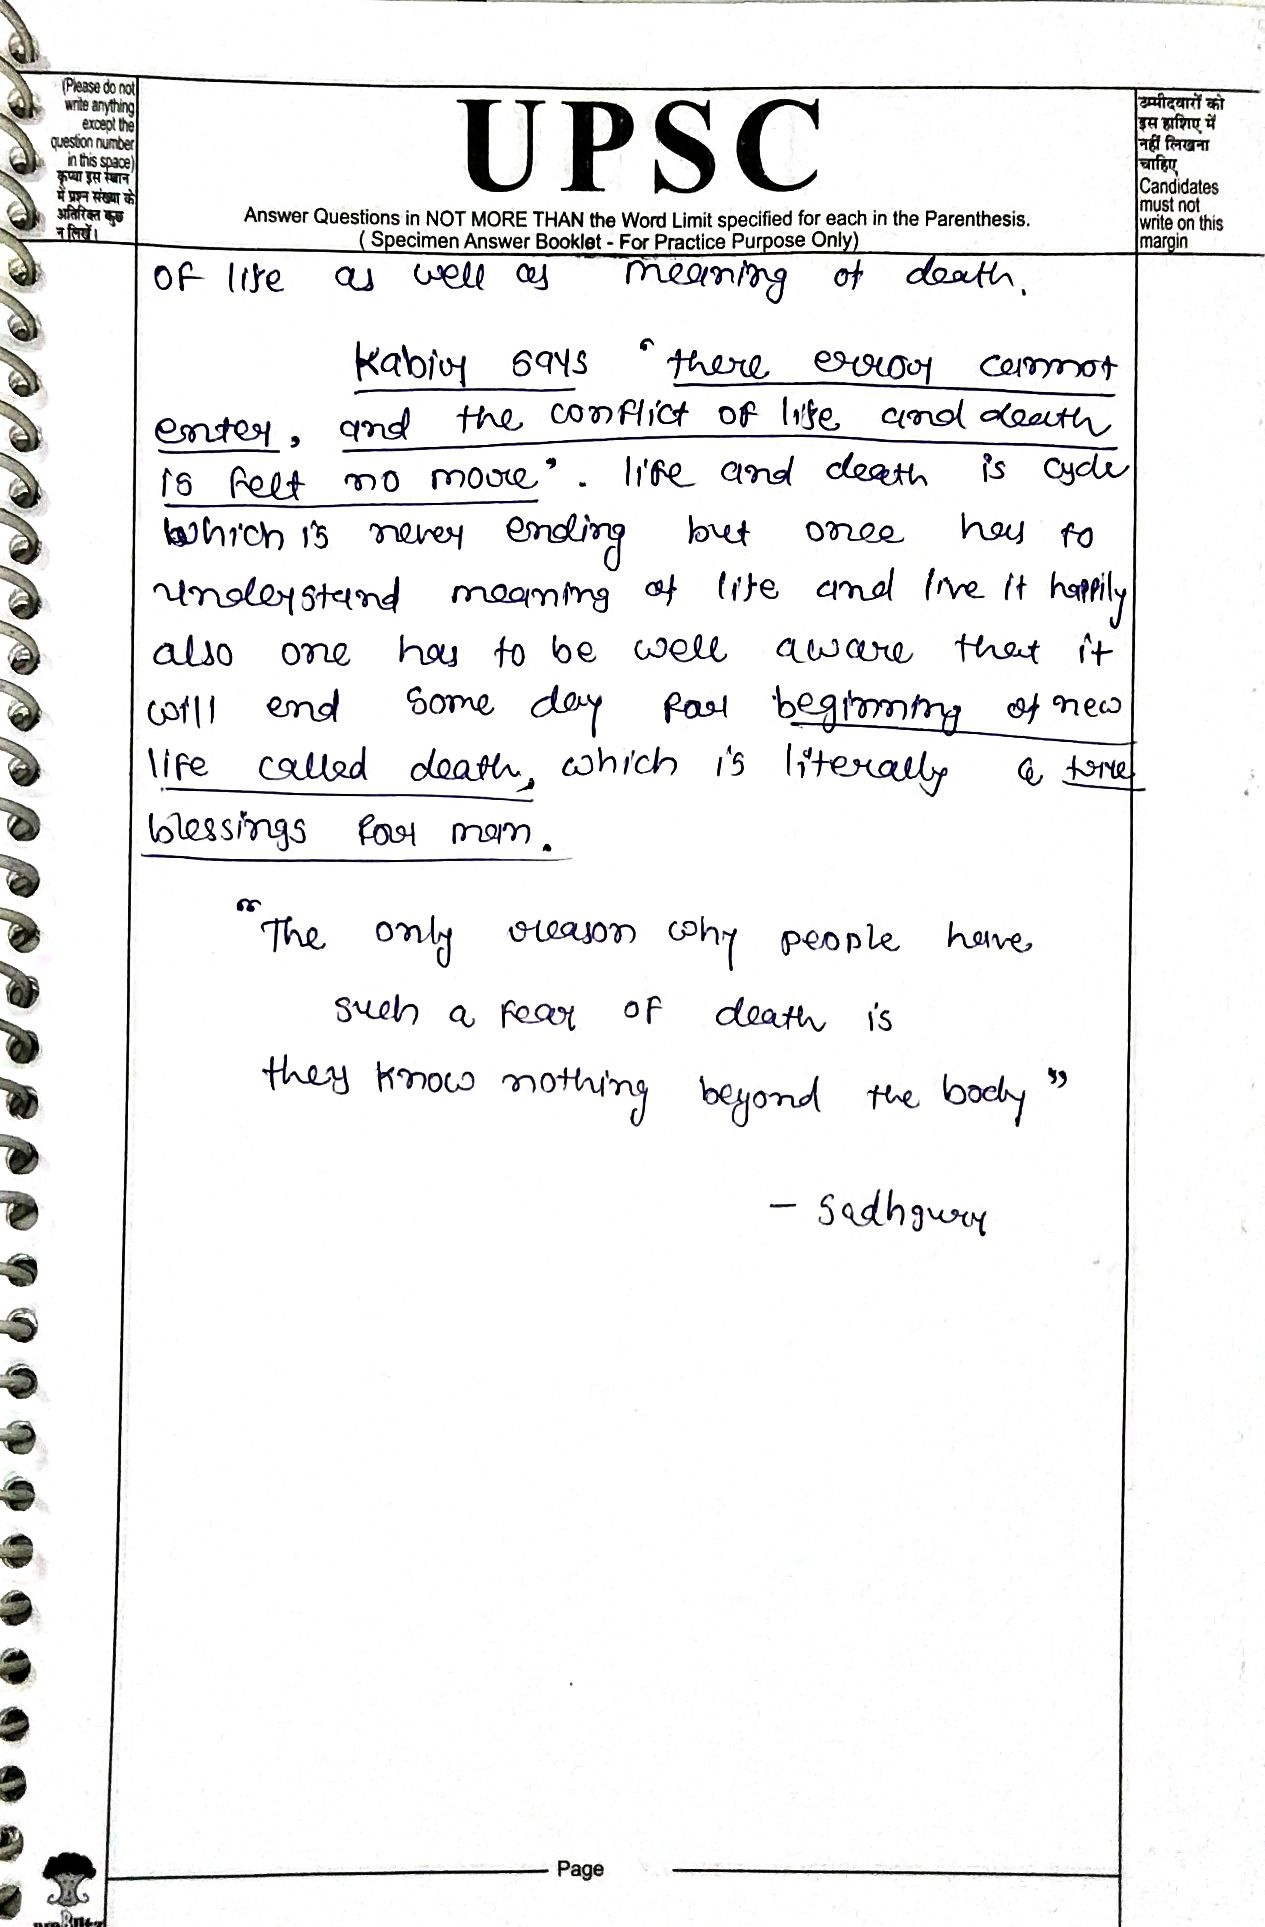 (Please do not
write anything
except the
question number
in this space)
कृप्या इस स्थान
में प्रश्न संख्या के
अतिरिक्त कुछ
न लिखें।
UPSC
Answer Questions in NOT MORE THAN the Word Limit specified for each in the Parenthesis.
( Specimen Answer Booklet - For Practice Purpose Only)
उम्मीदवारों को
इस हाशिए में
नहीं लिखना
चाहिए
Candidates
must not
write on this
margin
of life as well as meaning of death.
Kabir says "there error cannot
enter, and the conflict of life and death
is felt no more". life and death is cycle
which is never ending but once has to
understand meaning of life and live it happily
also one has to be well aware that it
will end some day for beginning of new
life called death, which is literally a true
blessings for man.
"The only reason why people have
such a fear of death is
they know nothing beyond the body"
- Sadhguru
Page